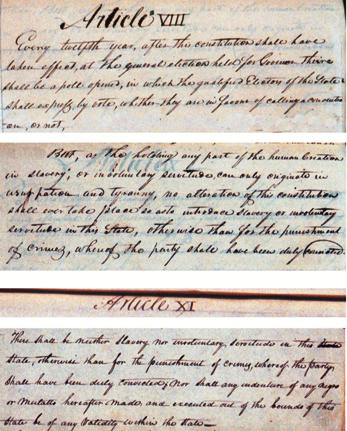 Article VIII
Every twelfth year, after the constitution shall have
taken effect, at the general election held for Governor there
shall be a poll opened, in which the qualified Electors of the State
shall express, by vote, whether they are in favour of calling a convention
or, not,
But, as the holding any part of the human Creation
in slavery, or involuntary servitude, can only originate in
usurpation and tyranny, no alteration of this constitution
shall ever take place so as to introduce slavery or involuntary
servitude in this State, otherwise than for the punishment
of crimes, whereof the party shall have been duly convicted.
Article XI
There shall be neither Slavery nor involuntary servitude in this
State, otherwise than for the punishment of crimes, whereof the party
shall have been duly convicted; Nor shall any indenture of any negro
or Mulatto hereafter made, and executed out of the bounds of this
State be of any Validity within the State—